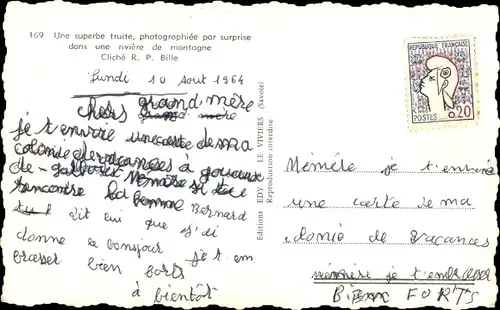 169 Une superbe truite, photographiée par surprise
dans une rivière de montagne
Cliché R. P. Bille
lundi 10 aout 1964
chers grand mère
je t'envoie une carte de ma
colonie de vacances à
rencontre la femme Bernard
dit lui que j'di
donne le bonjour je t'em
brasser bien forts
à bientôt
Editions EDY LE VIVIERS (Savoie)
Reproduction interdite
REPUBLIQUE FRANÇAISE
POSTES 0,20
Mémère je t'envoie
une carte de ma
colonie de vacances
mémère je t'embrasse
Bien FORTS